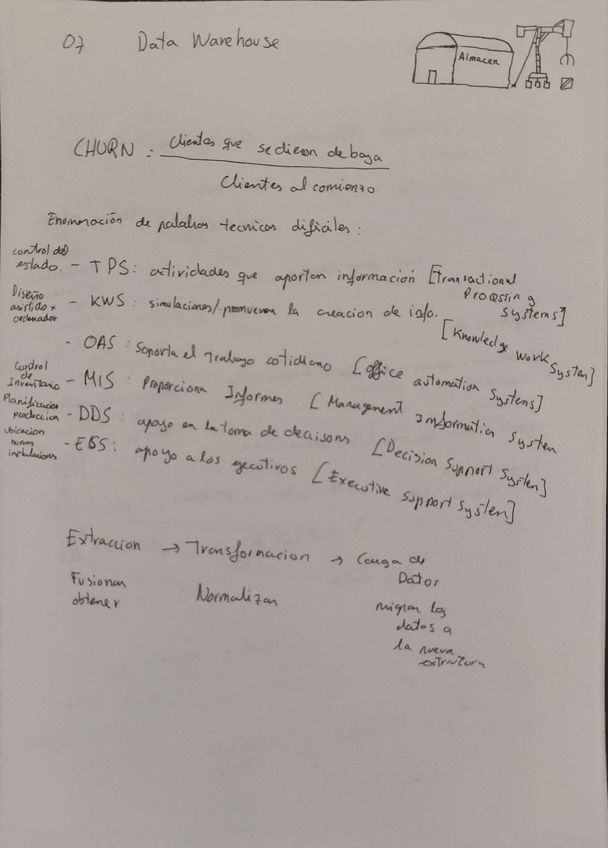 07 Data Warehouse
Almacen
CHURN = Clientes que se dieron de baja
Clientes al comienzo
Enumeración de palabras tecnicas dificiles:
control del
estado. - TPS: actividades que aportan información [Transactional
Processing
Systems]
Diseño
asistido x
ordenador - KWS: simulaciones/promueven la creacion de info.
[Knowledge Work
System]
- OAS: Soporta el trabajo cotidiano [office automation Systems]
Control
de
Inventario - MIS: Proporciona Informes [Management Information System
Planificacion
produccion - DDS: apoyo en la toma de decisons [Decision Support System]
ubicacion
nuevas
instalaciones - EBS: apoyo a los ejecutivos [Executive support System]
Extraccion → Transformacion → Carga de
Datos
Fusionar
obtener
Normalizar
migrar los
datos a
la nueva